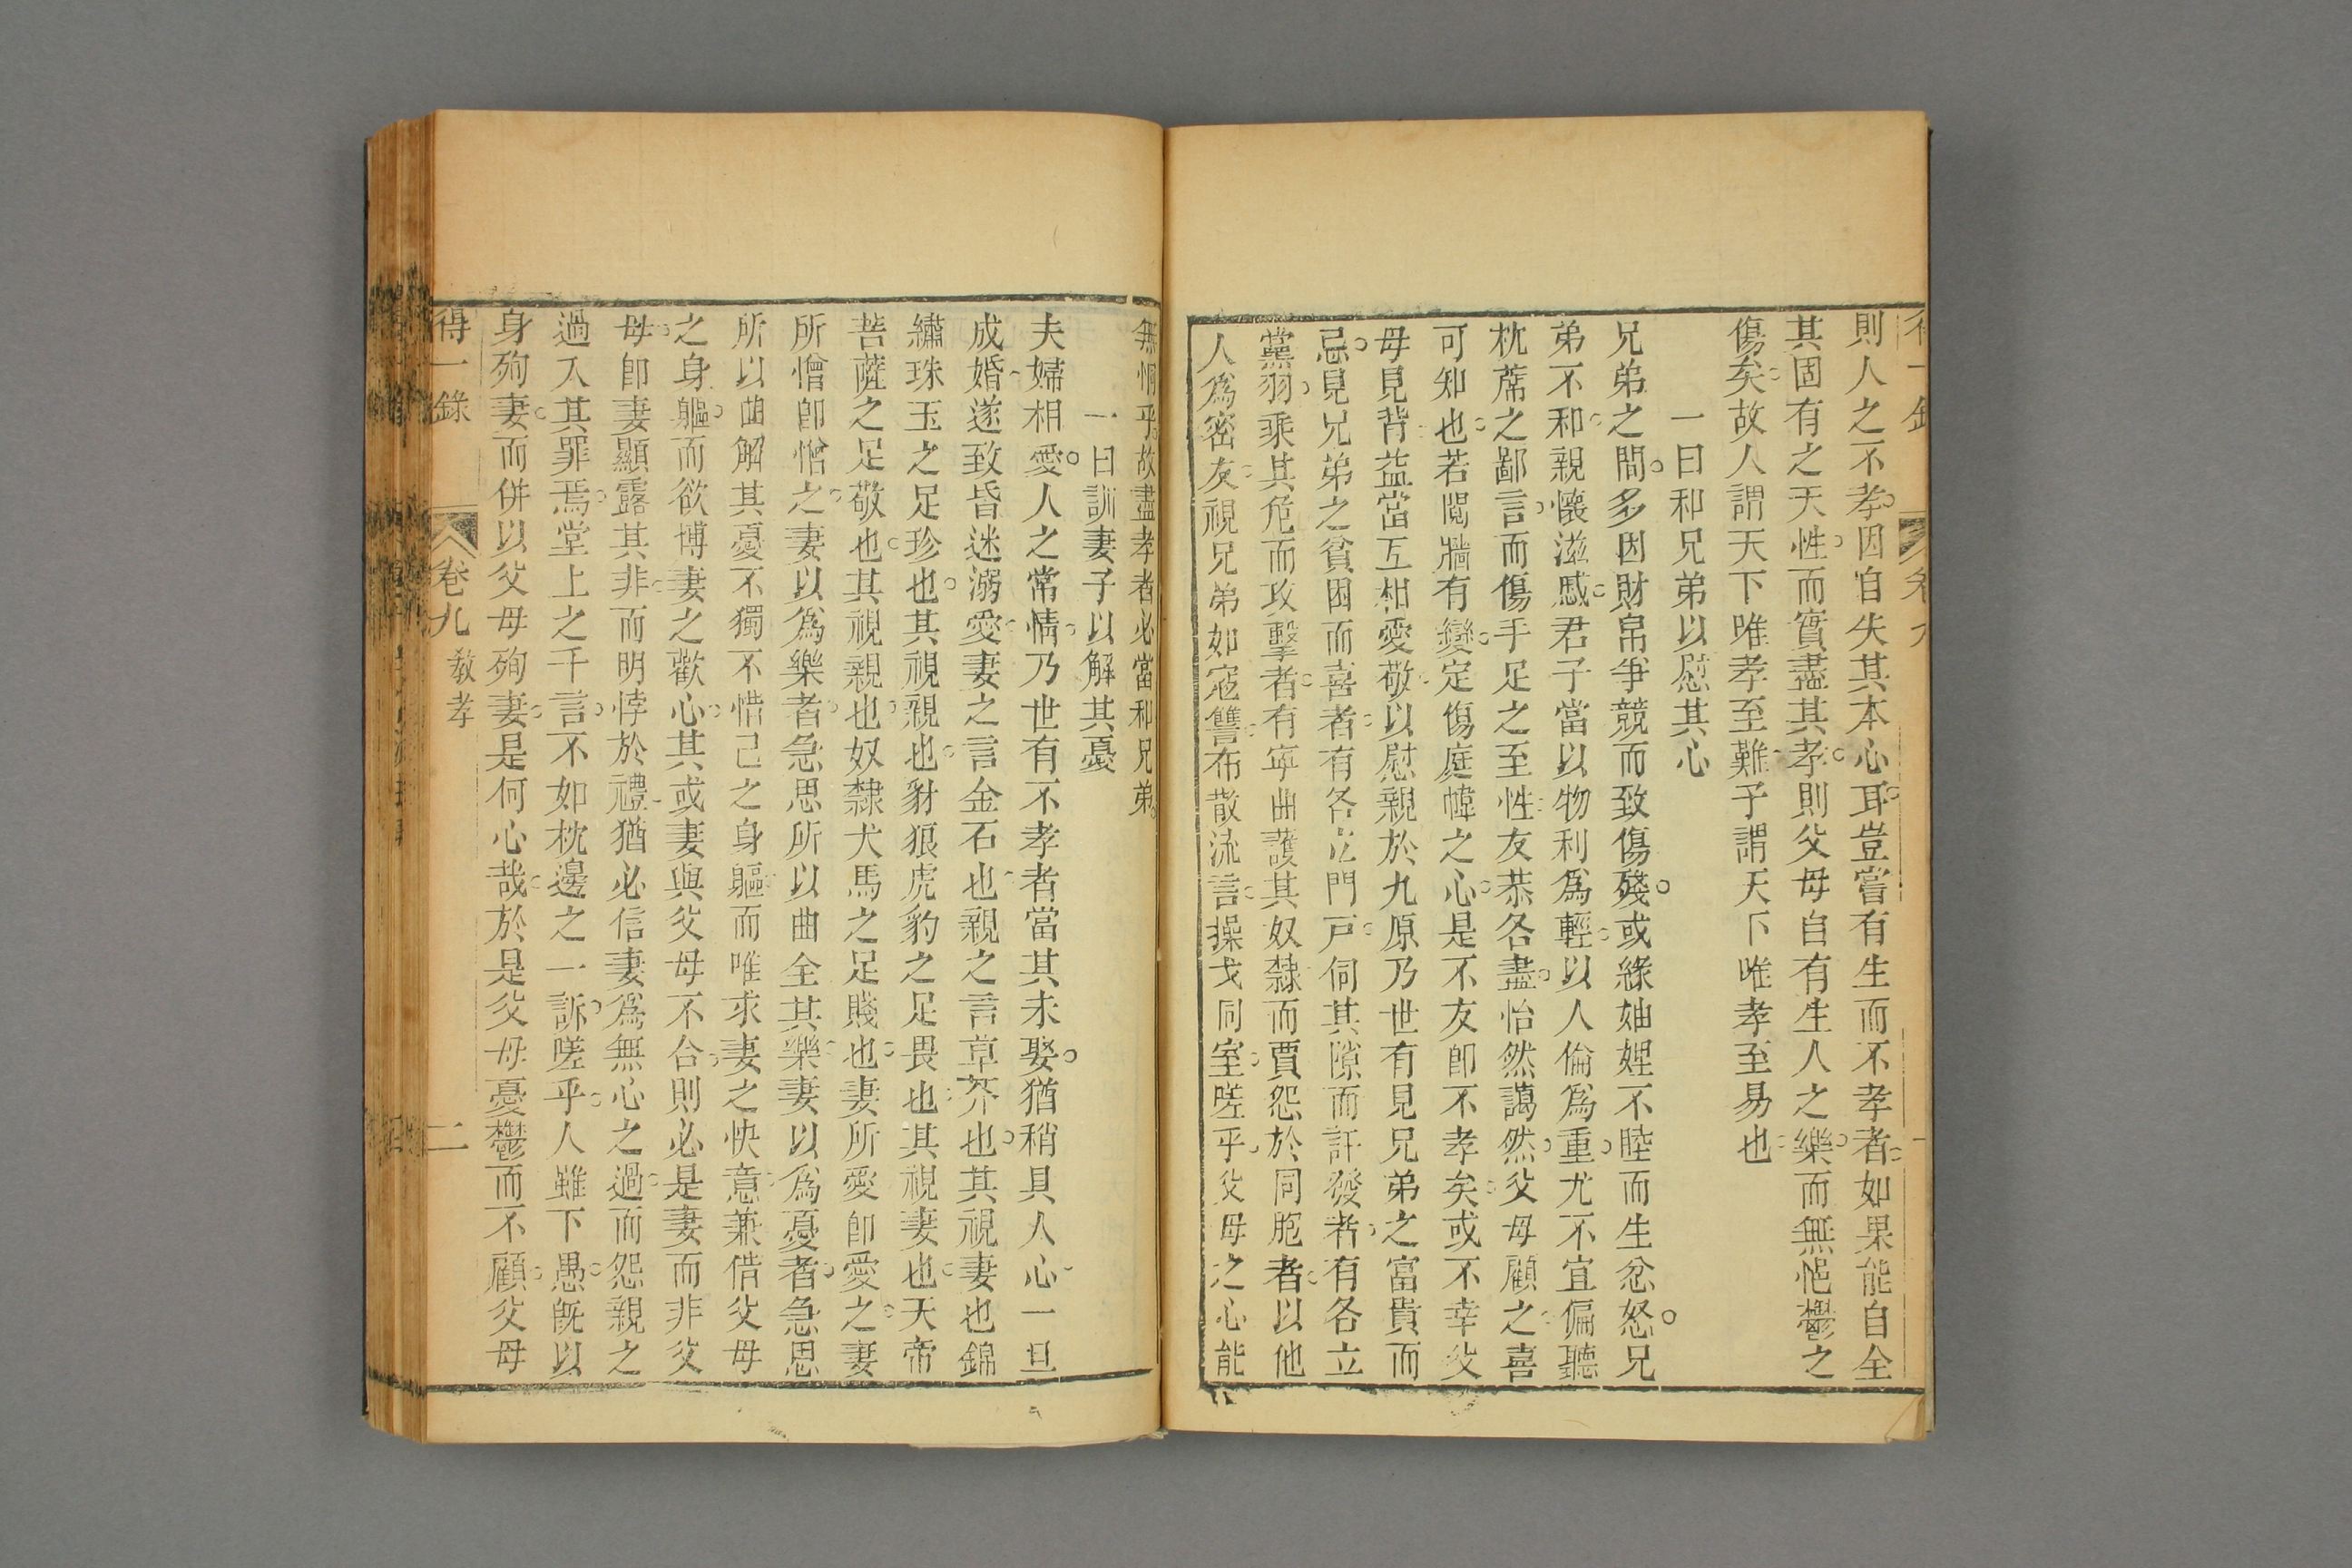 則人之不孝因自失其本心耳豈嘗有生而不孝者如果能自全
其固有之天性而實盡其孝則父母自有生人之樂而無悒鬱之
傷矣故人謂天下唯孝至難予謂天下唯孝至易也
一曰和兄弟以慰其心
兄弟之間多因財帛爭競而致傷殘或緣妯娌不睦而生忿怒兄
弟不和親懷滋慼君子當以物利為輕以人倫為重尤不宜偏聽
枕蓆之鄙言而傷手足之至性友恭各盡怡然藹然父母顧之喜
可知也若鬩牆有變定傷庭幃之心是不友即不孝矣或不幸父
母見背益當互相愛敬以慰親於九原乃世有見兄弟之富貴而
忌見兄弟之貧困而喜者有各立門戶伺其隙而訐發者有各立
黨羽乘其危而攻擊者有寧曲護其奴隸而賈怨於同胞者以他
人為密友視兄弟如寇讐布散流言操戈同室嗟乎父母之心能
無恫乎故盡孝者必當和兄弟
一曰訓妻子以解其憂
夫婦相愛人之常情乃世有不孝者當其未娶猶稍具人心一旦
成婚遂致昏迷溺愛妻之言金石也親之言草芥也其視妻也錦
繡珠玉之足珍也其視親也豺狼虎豹之足畏也其視妻也天帝
菩薩之足敬也其視親也奴隸犬馬之足賤也妻所愛即愛之妻
所憎即憎之妻以為樂者急思所以曲全其樂妻以為憂者急思
所以曲解其憂不獨不惜己之身軀而唯求妻之快意兼借父母
之身軀而欲博妻之歡心其或妻與父母不合則必是妻而非父
母即妻顯露其非而明悖於禮猶必信妻為無心之過而怨親之
過入其罪焉堂上之千言不如枕邊之一訴嗟乎人雖下愚既以
身殉妻而併以父母殉妻是何心哉於是父母憂鬱而不顧父母
得一錄 卷九 教孝 二